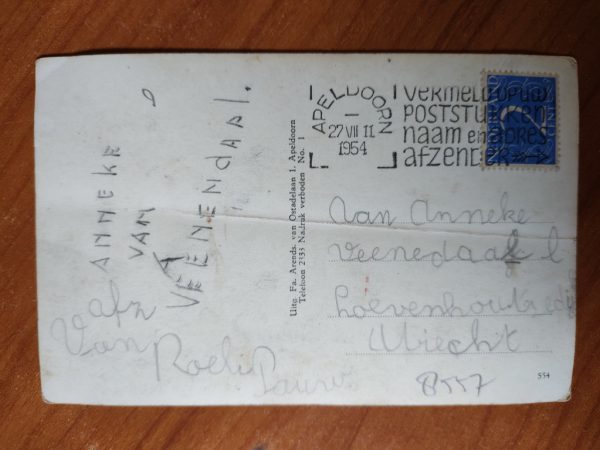 APELDOORN
27 VII 11
1954
VERMELD OP UW
POSTSTUKKEN
naam en adres
afzender
NEDERLAND
Aan Anneke
Veenedaal l
Utrecht
8557
554
Uitg. Fa. Arends. van Ostadelaan 1. Apeldoorn
Telefoon 2333 Nadruk verboden No. 1
ANNEKE
VAN
VEENENDAAL.
afz
Van
Pauw